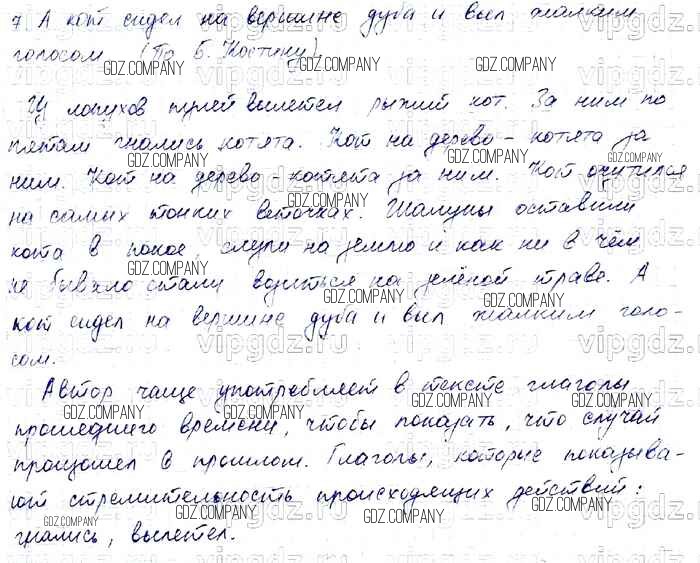 7. А кот сидел на вершине дуба и выл жалким
голосом (По Б. Костину)
Из лопухов пулей вылетел рыжий кот. За ним по
пятам гнались котята. Кот на дерево - котята за
ним. Кот на дерево - котята за ним. Кот очутился
на самых тонких веточках. Шалуны оставили
кота в покое, слезли на землю и как ни в чём
не бывало стали возиться на зелёной траве. А
кот сидел на вершине дуба и выл жалким голо-
сом.
Автор чаще употребляет в тексте глаголы
прошедшего времени, чтобы показать, что случай
произошел в прошлом. Глаголы, которые показыва-
ют стремительность происходящих действий:
гнались, вылетел.